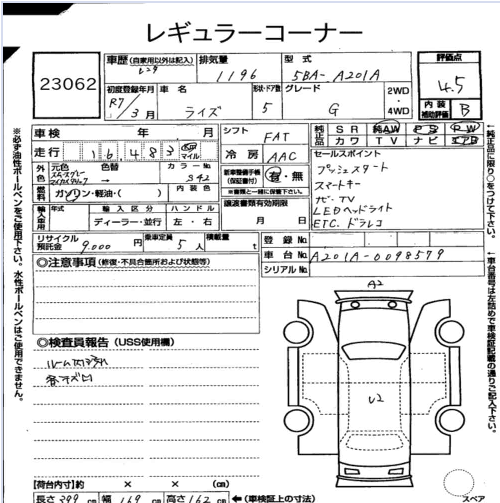 レギュラーコーナー
23062
車歴(自家用以外は記入) レンタ
排気量 1196
型式 5BA-A201A
評価点 4.5
初度登録年月 R7/3月
車名 ライズ
形状・ドア数 5
グレード G
2WD・4WD
内装補助評価 B
車検 年 月
シフト FAT
純正品 SR 純AW PS PW
カワ TV ナビ エアB
走行 16,483 Km マイル
冷房 AAC
セールスポイント
プッシュスタート
スマートキー
ナビ・TV
LEDヘッドライト
ETC.ドラレコ
外色 元色 色替 カラーNo. S42
新車整備手帳(保証書付) 有・無
※書類と一緒に保管下さい。
燃料 ガソリン・軽油・( ) 内装色
譲渡書類有効期限
月 日
輸入車用 年式 輸入区分 ハンドル
ディーラー・並行 左・右
リサイクル預託金 9,000円
乗車定員 5人
積載量 t
登録No.
車台No. A201A-0098579
シリアルNo.
◎注意事項(修復・不具合箇所および状態等)
A2
U2
◎検査員報告(USS使用欄)
ルーム内汚れ
各キズ凹
【荷台内寸】約 × × (cm)
長さ 399 cm 幅 169 cm 高さ 162 cm ←(車検証上の寸法)
スペア
※必ず油性ボールペンをご使用下さい。水性ボールペンはご使用できません。
←純正品に限り○をつけて下さい。
←車台番号は左詰めで車検証記載の通りご記入下さい。